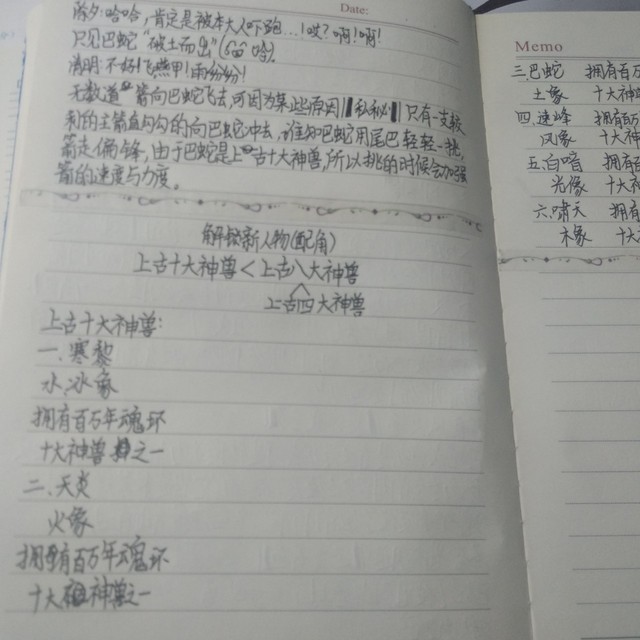 Date:
除夕哈哈,肯定是被本大人吓跑…!哎?啊!啊!
只见巴蛇"破土而出"(
清明:不好!飞燕甲!雨纷纷!
无数道 箭向巴蛇飞去,可因为某些原因 秘秘 只有一支较
利的主箭直勾勾的向巴蛇冲去,谁知巴蛇用尾巴轻轻一挑,
箭走偏锋,由于巴蛇是上古十大神兽,所以挑的时候会加强
箭的速度与力度。
解锁新人物(配角)
上古十大神兽<上古八大神兽
上古四大神兽
上古十大神兽:
一.寒
水、冰象
拥有百万年魂环
十大神兽之一
二.天炎
火像
拥有百万年魂环
十大神兽之一
Memo
三.巴蛇 拥有百万
土象 十大神
四.速峰 拥有百
风象 十大神
五.白 拥有
光像 十大神
六.啸天 拥有
木象 十大